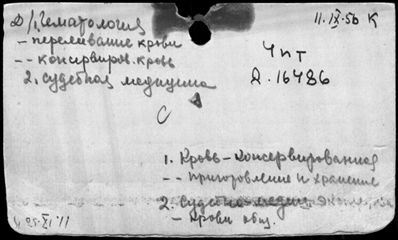 Д/1. Гематология
11.IX.56 К
– переливание крови
-- консервиров. кровь
2. судебная медицина
Чит
Д. 16486
С
1. Кровь – консервирование
-- приготовление и хранение
2. Судебно-медиц. эксперт.
– крови общ.
11.IX.59